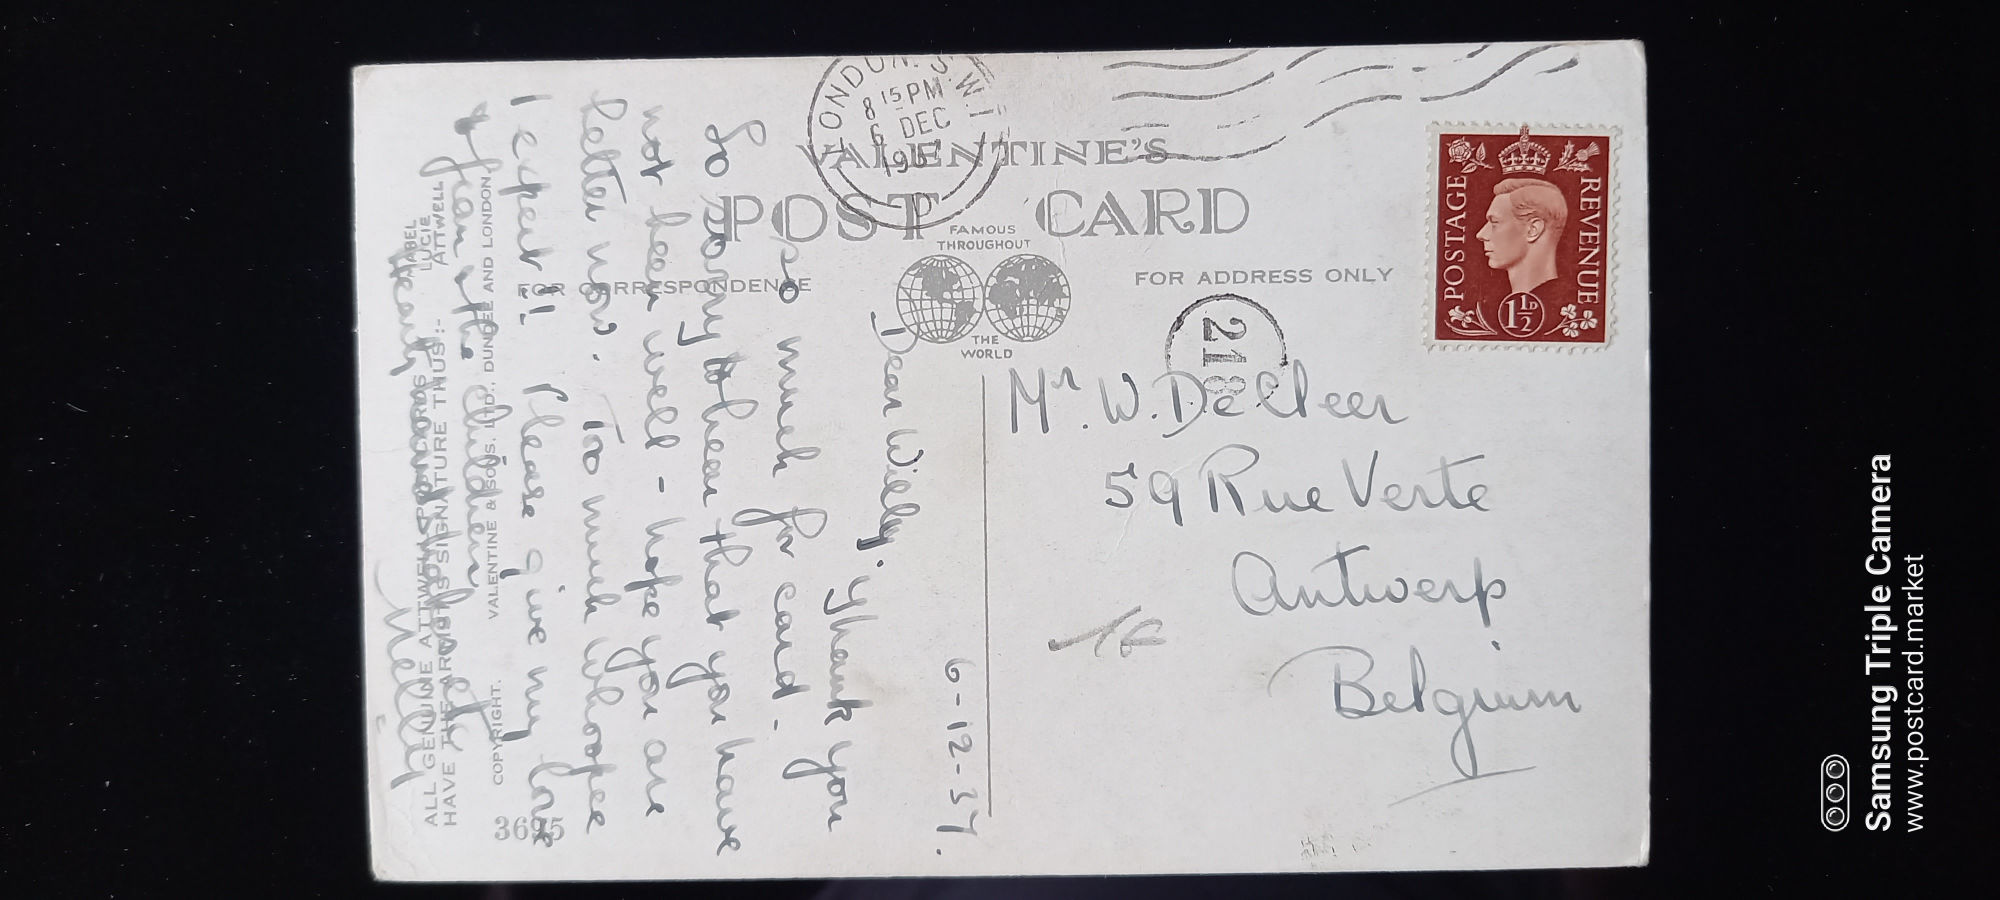 LONDON. S.W.1
8 15 PM
6 DEC
193
VALENTINE'S
POST CARD
FAMOUS
THROUGHOUT
THE
WORLD
FOR CORRESPONDENCE
FOR ADDRESS ONLY
POSTAGE
REVENUE
1 1/2 D
218
Mr. W. De Cleer
59 Rue Verte
Antwerp
Belgium
6-12-37.
Dear Willy. Thank you
so much for card.
So sorry to hear that you have
not been well - hope you are
better now. Too much Whoopee
I expect!! Please give my love
to Jean & the children
Nelly
ALL GENUINE ATTWELL POSTCARDS
HAVE THE ARTIST'S SIGNATURE THUS:-
MABEL
LUCIE
ATTWELL
COPYRIGHT. VALENTINE & SONS. LTD., DUNDEE AND LONDON.
3695
Samsung Triple Camera
www.postcard.market